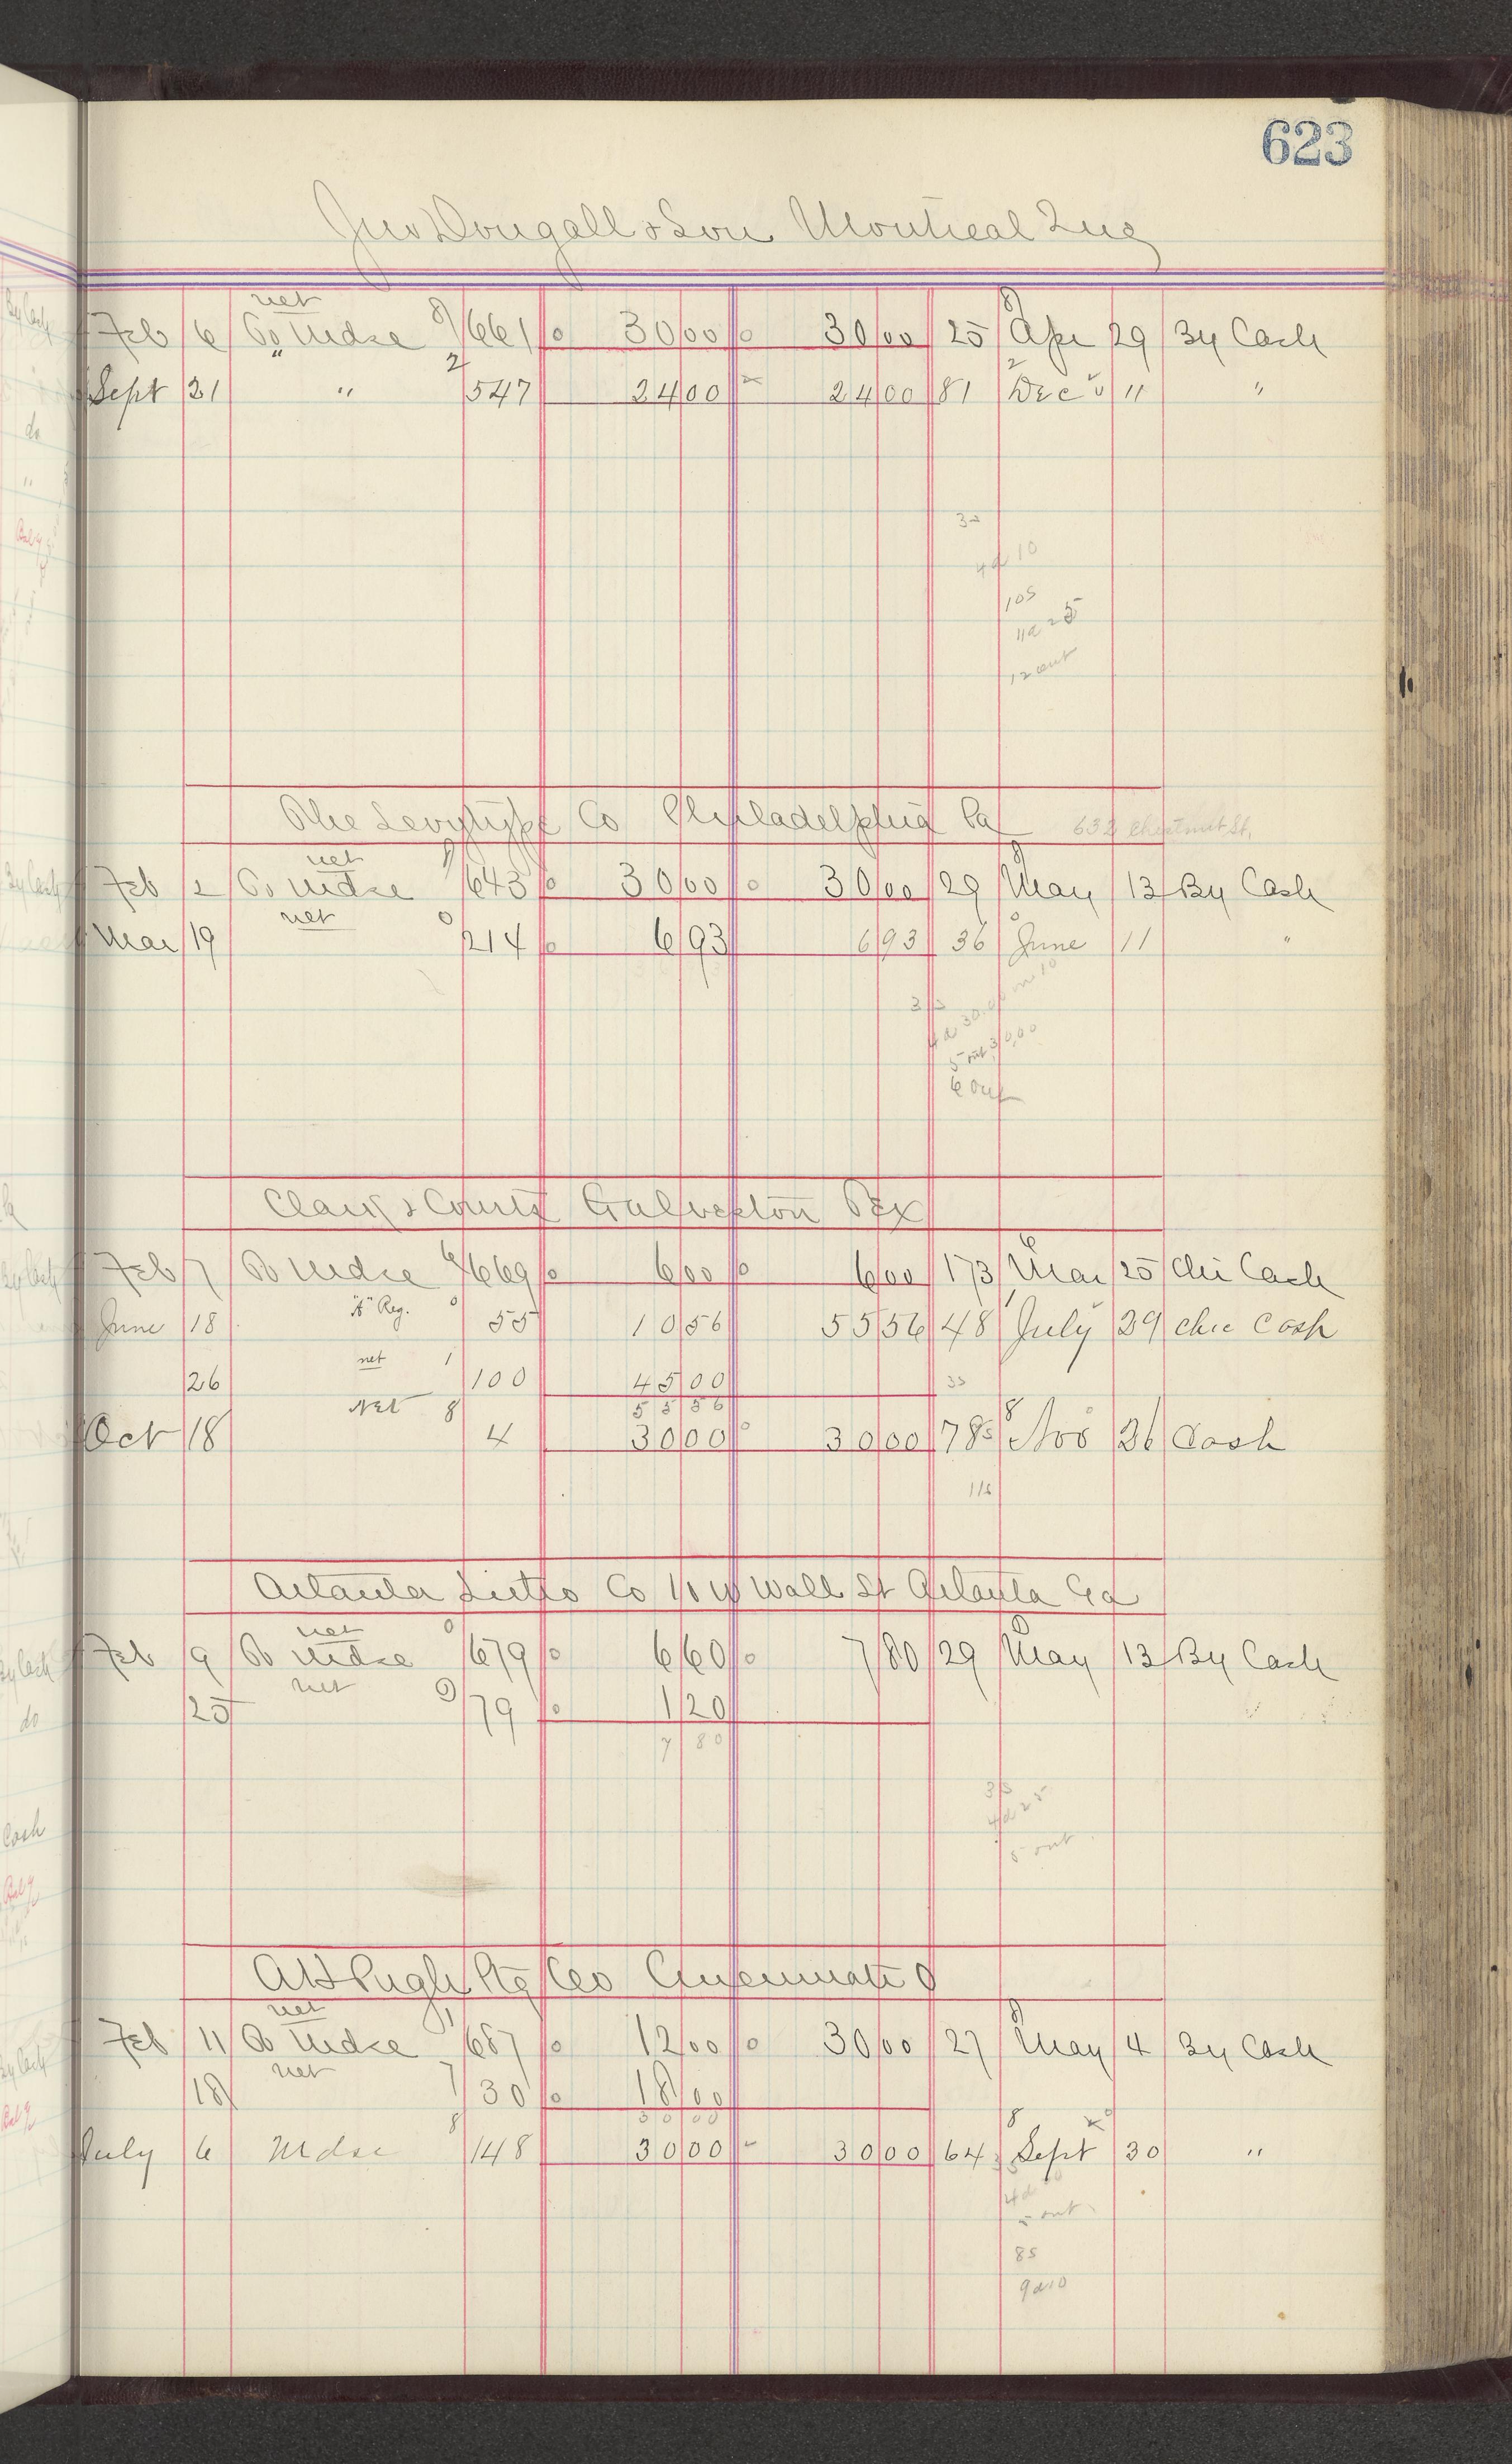 623
Jno Dougall & Son Montreal Que
net
Feb 6 To Mdse 8 661 0 30 00 0 30 00 25 Apr 29 By Cash
2 2
Sept 21 " " 547 24 00 24 00 81 Dec 11 "
3s
4d 10
10s
11d 25
12 out
The Levytype Co Philadelphia Pa 632 Chestnut St.
net
Feb 2 To Mdse 643 0 30 00 0 30 00 29 May 13 By Cash
net 0
Mar 19 214 0 6 93 6 93 36 June 11 "
3s
4d 30.00 on 10
5 out 30.00
6 Out
Clark & Courts Galveston Tex
6
Feb 7 To Mdse 669 0 6 00 0 6 00 173 Mar 25 Chi Cash
"A" Reg. 0
June 18 55 10 56 55 56 48 July 29 chic Cash
net 1
26 100 45 00 3s
Net 8 55 56 8
Oct 18 4 30 00 0 30 00 78 Nov 26 Cash
11s
Atlanta Litho Co 10 W Wall St Atlanta Ga
net 0
Feb 9 To Mdse 679 0 6 60 0 7 80 29 May 13 By Cash
net 9
25 79 0 1 20
7 80
3s
4d 25
5 out
A H Pugh Ptg Co Cincinnati O
net
Feb 11 To Mdse 1 687 0 12 00 0 30 00 27 May 4 By Cash
net 7
18 30 0 18 00
8 30 00 8
July 6 Mdse 148 30 00 30 00 64 Sept 30 "
4d
5 out
8s
9d10